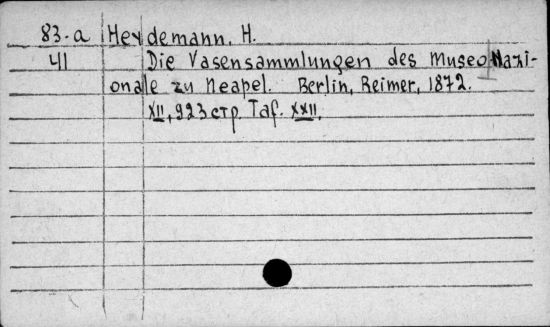 83-a Heydemann, H.
41 Die Vasensammlungen des Museo Nazi-
onale zu Neapel. Berlin, Reimer, 1872.
XII, 923 стр. Taf. XXII.